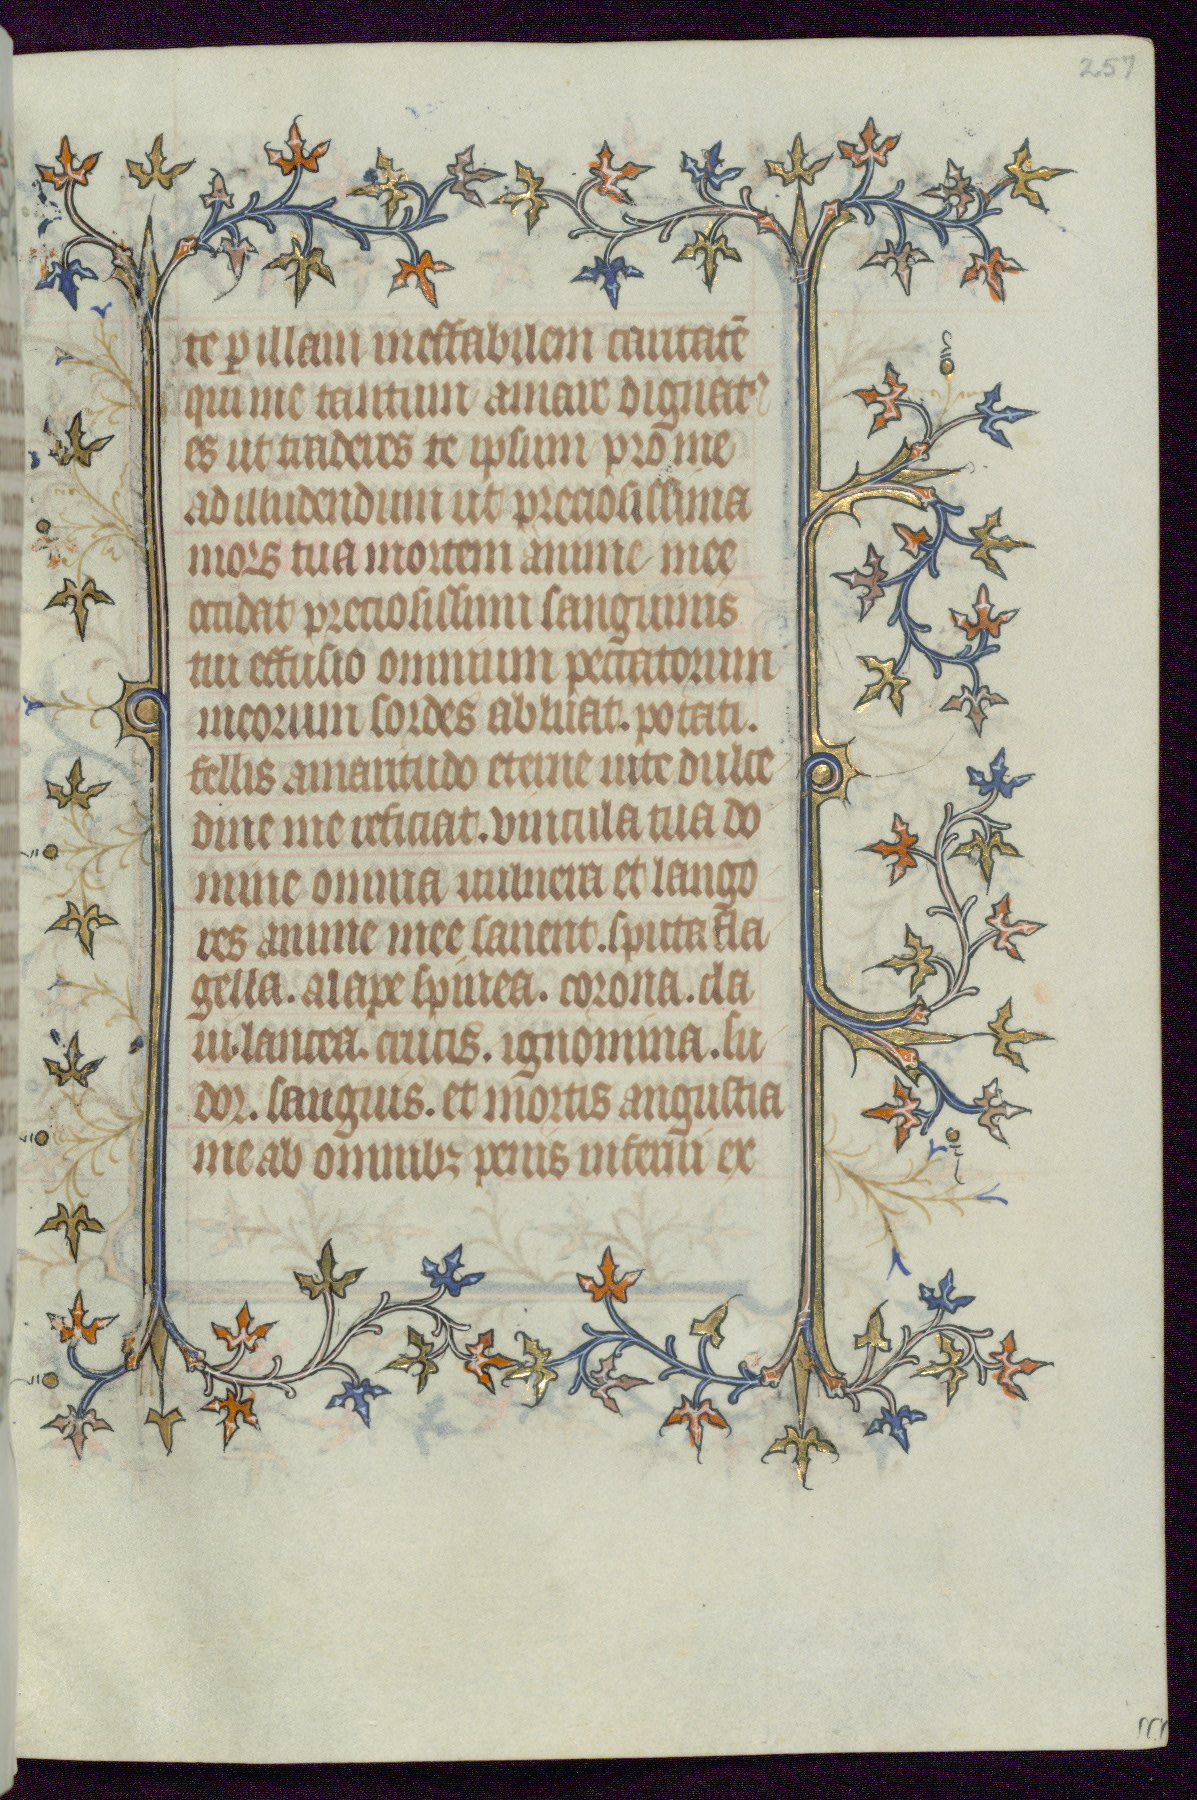 257
te ꝑ illam ineffabilem caritatē
qui me tantum amare dignat᷒
es ut traderes te ipsum pro me
ad illudendum ut preciosissima
mors tua mortem anime mee
occidat preciosissimi sanguinis
tui effusio omnium peccatorum
meorum sordes abluat. potati.
fellis amaritudo eterne uite dulce
dine me reficiat. vincula tua do
mine omnia uulnera et lango
res anime mee sanent. sputa fla
gella. alape spinea. corona. cla
ui. lancea. crucis. ignomina. su
dor. sanguis. et mortis angustia
me ab omnibꝫ penis inferni ex